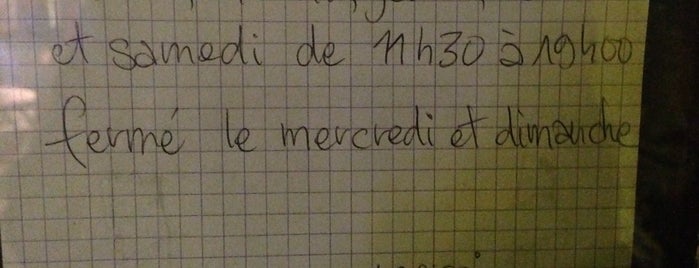 et samedi de 11h30 à 19h00
fermé le mercredi et dimanche